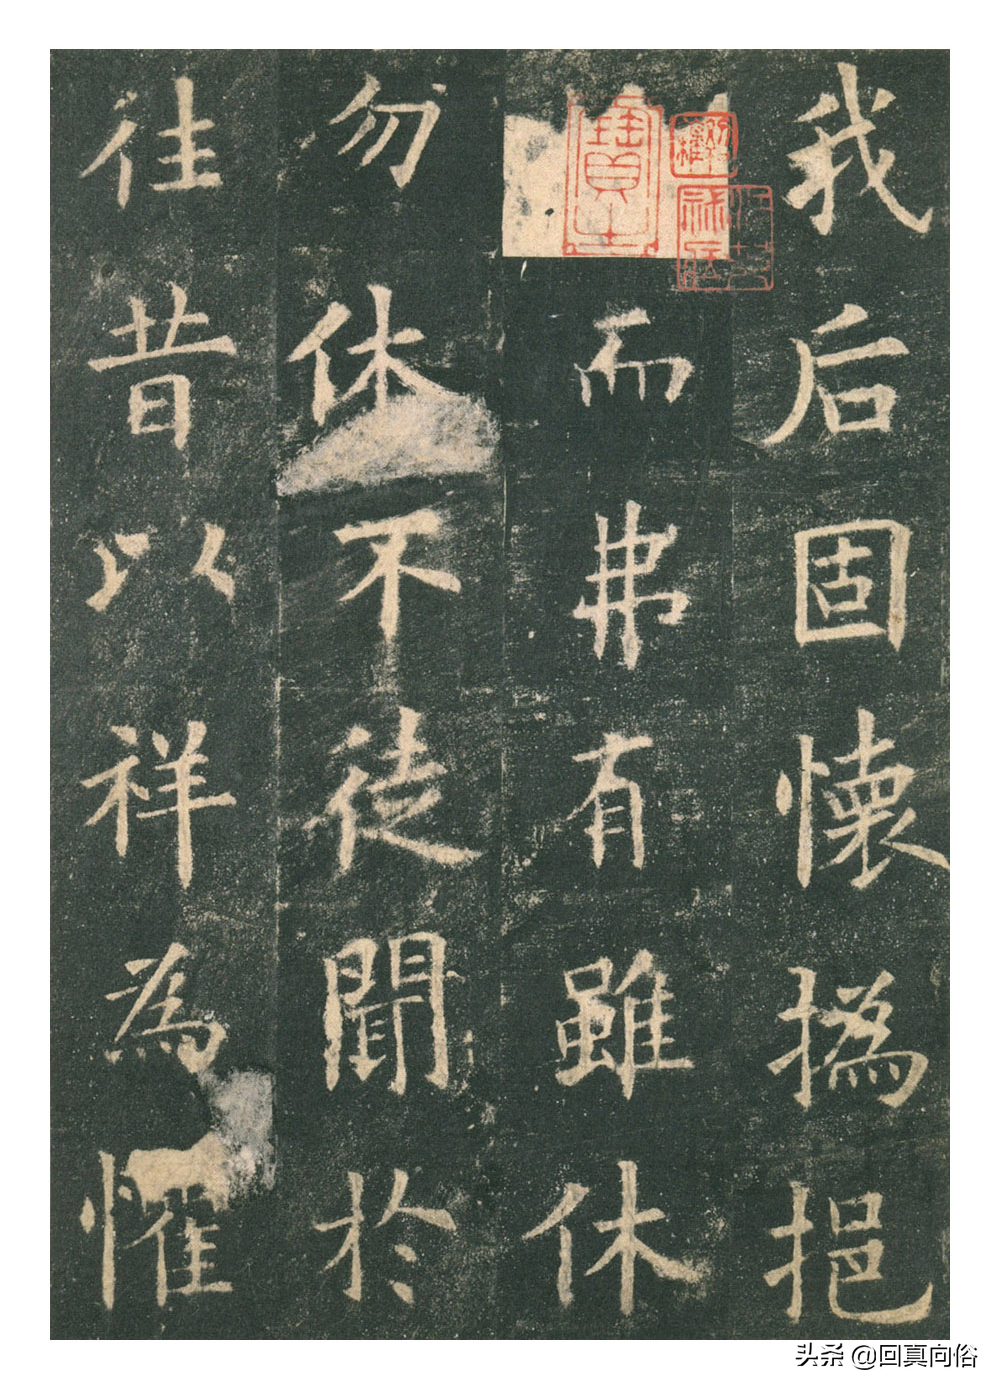 我后固懷撝挹
而弗有雖休
勿休不徒聞於
往昔以祥為懼
头条 @回真向俗